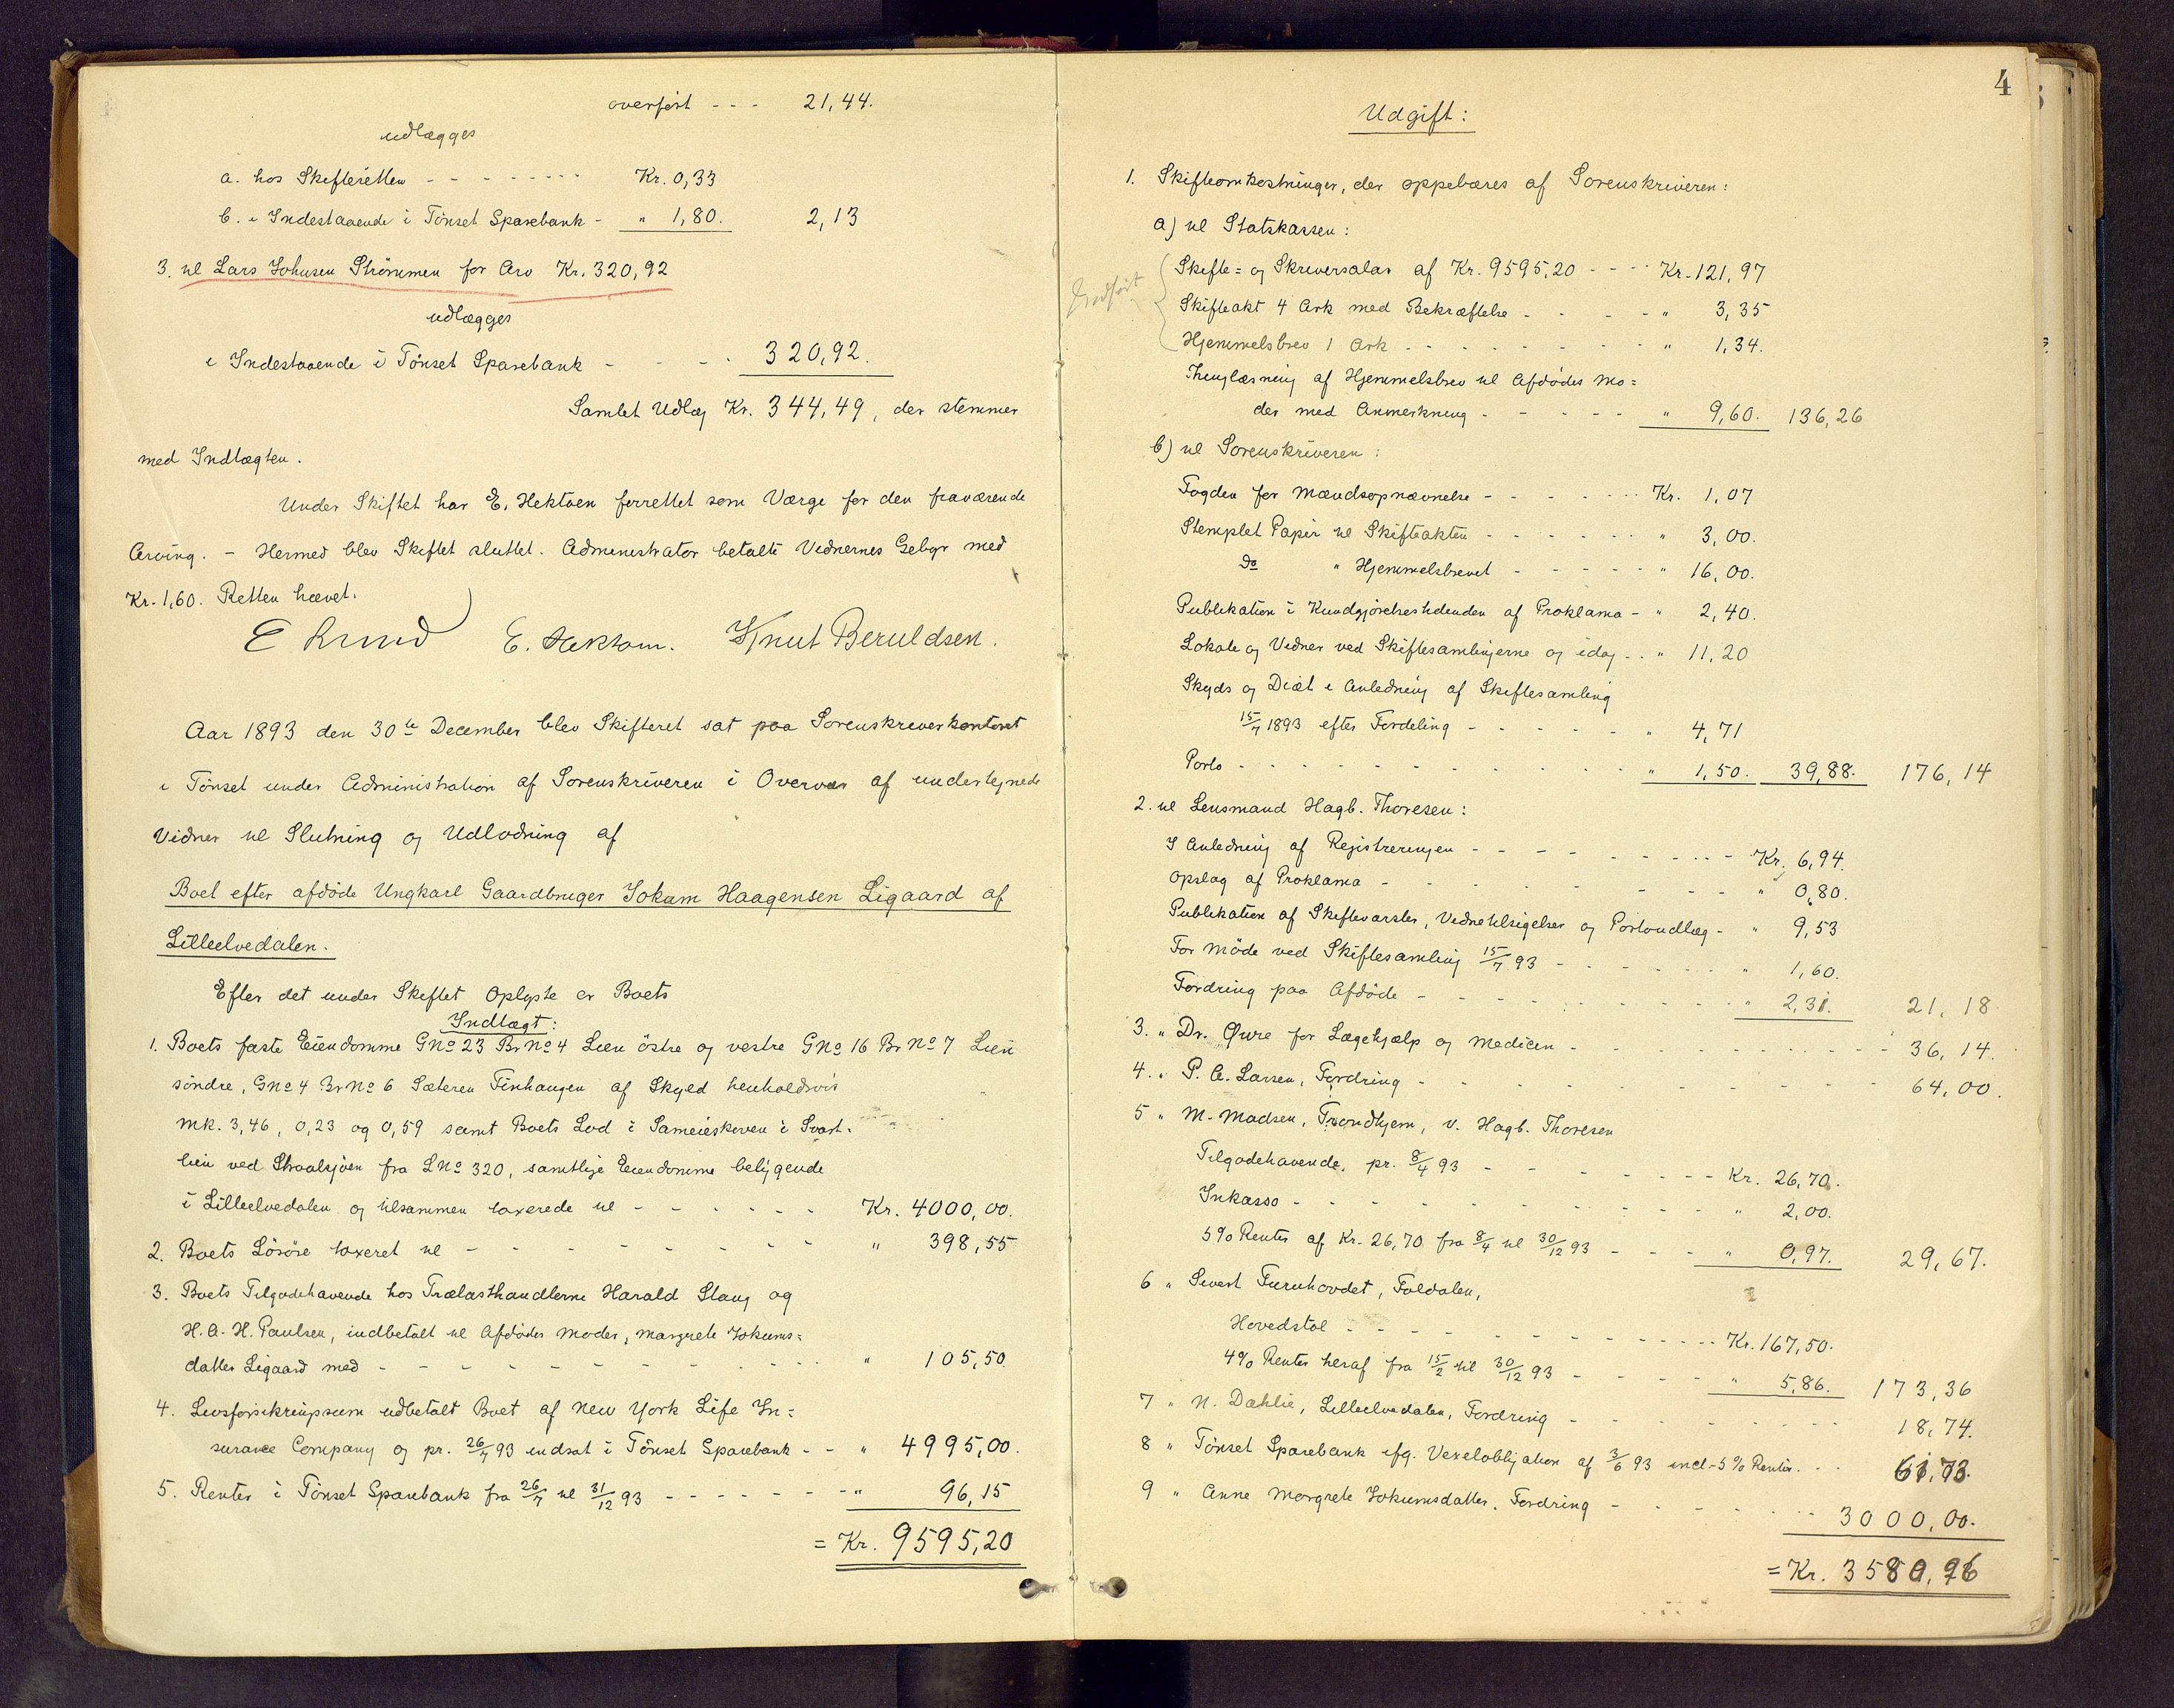 overført - - - 21,44.
udlægges
a. hos Skifteretten - - - - - - - - Kr. 0,33
b. i Indestaaende i Tönset Sparebank - " 1,80. 2,13
3. til Lars Johnsen Strömmen for Arv Kr. 320,92
udlægges
i Indestaaende i Tönset Sparebank - - - - 320,92.
Samlet Udlæg Kr. 344,49, der stemmer
med Indtægten.
Under Skiftet har E. Hektoen forrettet som Værge for den fraværende
Arving. - Hermed blev Skiftet sluttet. Administrator betalte Vidnernes Gebyr med
Kr. 1,60. Retten hævet.
E Lund E. Hektoen. Knut Beruldsen.
Aar 1893 den 30te December blev Skifteret sat paa Sorenskriverkontoret
i Tönset under Administration af Sorenskriveren i Overvær af undertegnede
Vidner til Slutning og Udlodning af
Boet efter afdöde Ungkarl Gaardbruger Jokum Haagensen Ligaard af
Lilleelvedalen.
Efter det under Skiftet Oplyste er Boets
Indtægt:
1. Boets faste Eiendomme GNo 23 BrNo 4 Lien östre og vestre GNo 16 BrNo 7 Lien
söndre, GNo 4 BrNo 6 Sæteren Finhaugen af Skyld henholdsvis
Mk. 3,46, 0,23 og 0,59 samt Boets Lod i Sameieskoven i Svart-
lien ved Straalsjöen fra LNo 320, samtlige Eiendomme beliggende
i Lilleelvedalen og tilsammen taxerede til - - - - - - Kr. 4000,00.
2. Boets Lösöre taxeret til - - - - - - - - - " 398,55
3. Boets Tilgodehavende hos Trælasthandlerne Harald Stang og
H. A. H. Paulsen, indbetalt til Afdödes Moder, Margrete Jokums=
datter Ligaard med - - - - - - - - - - - " 105,50.
4. Livsforsikringssum udbetalt Boet af New York Life In=
surance Company og pr. 26/7 93 indsat i Tönset Sparebank - - " 4995,00.
5. Renter i Tönset Sparebank fra 26/7 til 31/12 93 - - - - - - - - " 96,15
= Kr. 9595,20
4
Udgift:
1. Skifteomkostninger, der oppebæres af Sorenskriveren:
a) til Statskassen:
Skifte= og Skriversalær af Kr. 9595,20 - - - - Kr. 121,97
Skifteakt 4 Ark med Bekræftelse - - - - " 3,35
Hjemmelsbrev 1 Ark - - - - - - - - - " 1,34.
Thinglæsning af Hjemmelsbrev til Afdödes Mo=
der med Anmerkning - - - - - - " 9,60. 136,26
b) til Sorenskriveren:
Fogden for Mændsopnævnelse - - - - - - - Kr. 1,07
Stemplet Papir til Skifteakten - - - - - - " 3,00.
Do " Hjemmelsbrevet - - - - - " 16,00.
Publikation i Kundgjörelsestidenden af Proklama - " 2,40.
Lokale og Vidner ved Skiftesamlingerne og idag - - " 11,20
Skyds og Diæt i Anledning af Skiftesamling
15/7 1893 efter Fordeling - - - - - - " 4,71
Porto - - - - - - - - - - - - - " 1,50. 39,88. 176,14
2. til Lensmand Hagb. Thoresen:
I Anledning af Registreringen - - - - - - - - - - Kr. 6,94.
Opslag af Proklama - - - - - - - - - - " 0,80.
Publikation af Skiftevarsler, Vidnetilsigelser og Portoudlæg - " 9,53
For Möde ved Skiftesamling 15/7 93 - - - - - - " 1,60.
Fordring paa Afdöde - - - - - - - - - - " 2,31. 21,18
3. " Dr. Qure for Lægehjælp og Medicin - - - - - - - - - - - 36,14.
4. " P. A. Larsen, Fordring - - - - - - - - - - - - 64,00.
5 " M. Madsen, Trondhjem, v. Hagb. Thoresen
Tilgodehavende, pr. 8/4 93 - - - - - - - - Kr. 26,70.
Inkasso - - - - - - - - - - - - - " 2,00.
5% Renter af Kr. 26,70 fra 8/4 til 30/12 93 - - - - " 0,97. 29,67.
6 " Sivert Furuhovdet, Foldalen,
Hovedstol - - - - - - - - - - - - - Kr. 167,50.
4% Renter heraf fra 15/2 til 30/12 93 - - - - - " 5,86. 173,36
7 " N. Dahlie, Lilleelvedalen, Fordring - - - - - - - - - - 18,74.
8 " Tönset Sparebank ifg. Vexelobligation af 3/6 93 incl. 5% Renter. - - 61,73.
9 " Anne Margrete Jokumsdatter, Fordring - - - - - - - 3000,00.
= Kr. 3580,96